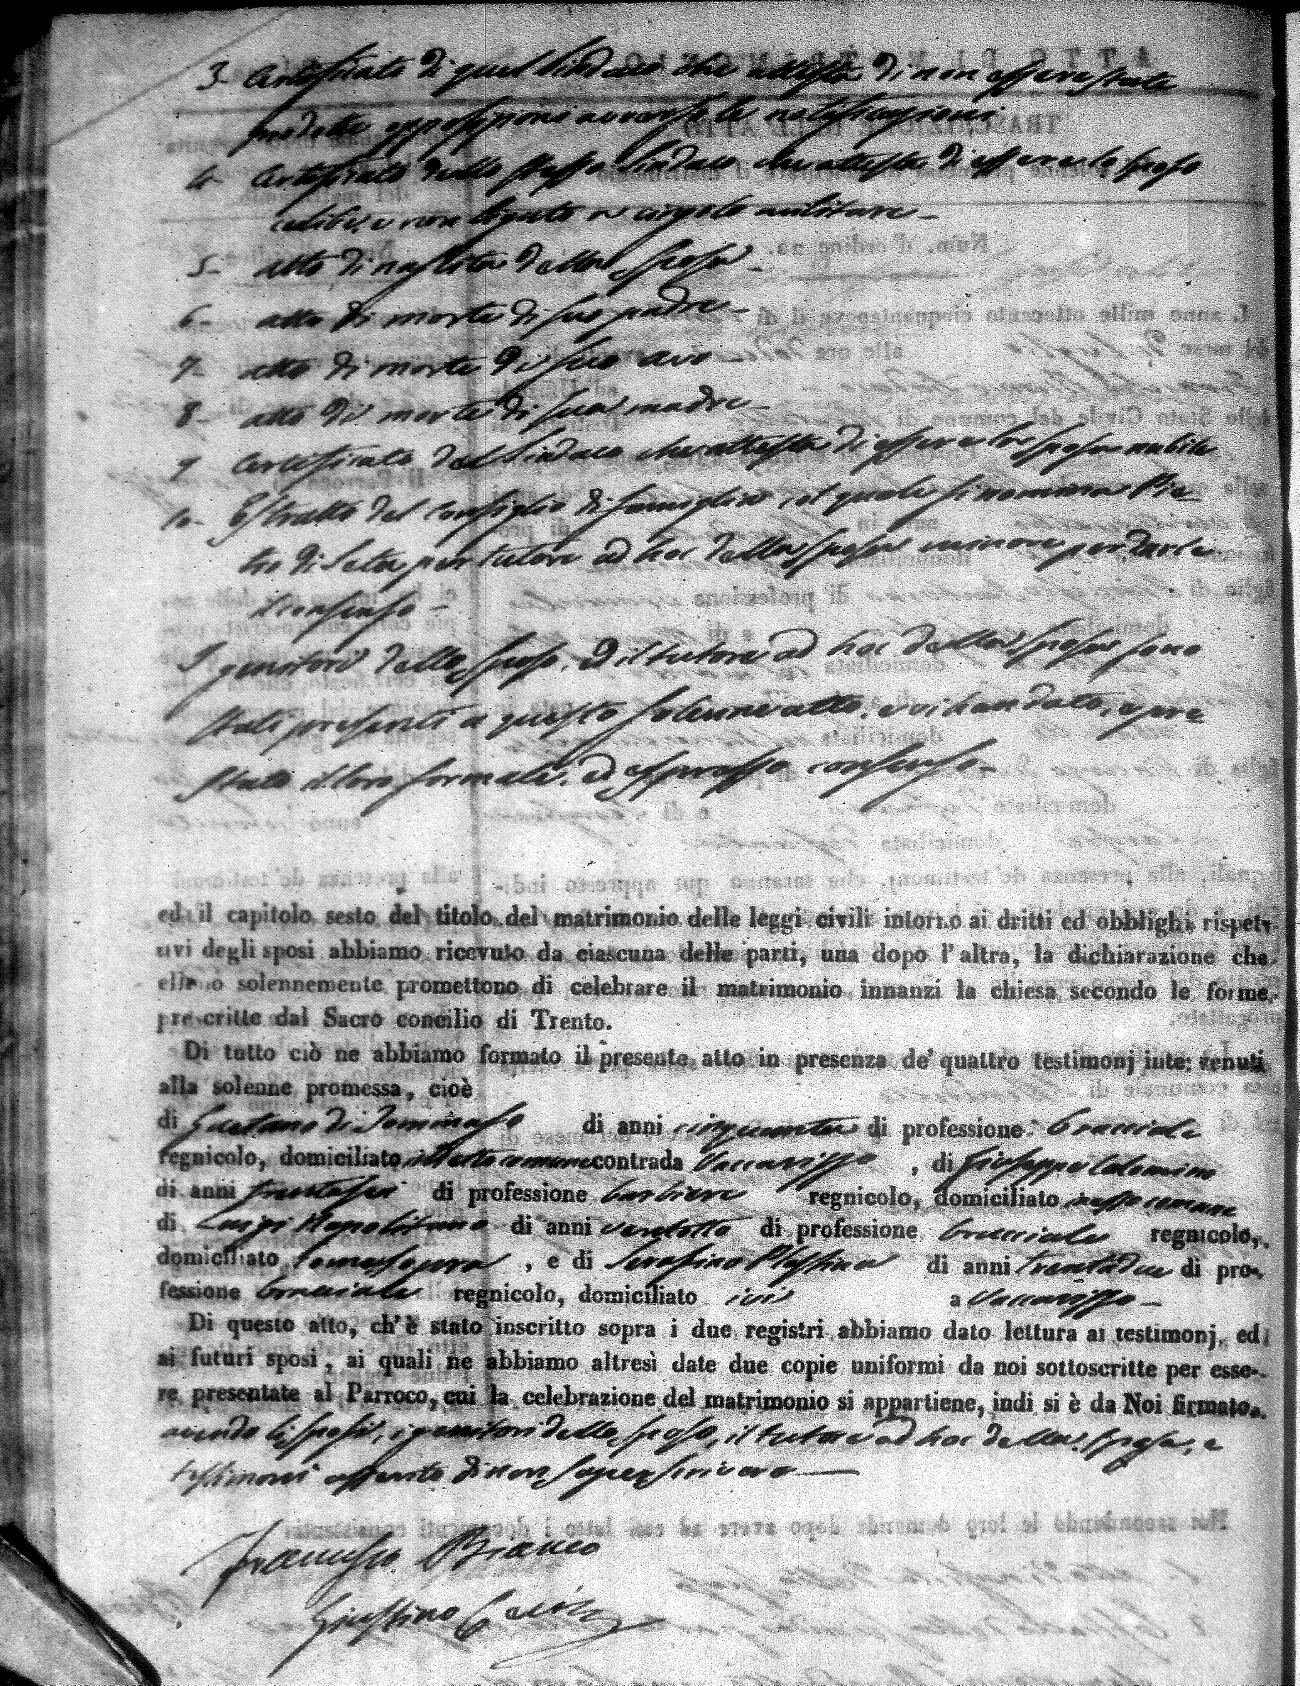 3. Certificato di quel Sindaco che attesta di non essere state
prodotte opposizioni avverso le notificazioni
4. Certificato dello stesso Sindaco che attesta di essere lo sposo
celibe, e non legato a cingolo militare -
5. atto di nascita della sposa -
6. atto di morte di suo padre -
7. atto di morte di suo avo -
8. atto di morte di sua madre -
9. Certificato del Sindaco che attesta di essere la sposa nubile
10. Estratto del Consiglio di famiglia, col quale si nomina Pie-
tro di Seta per tutore ad hoc della sposa minore per darle
il consenso -
I genitori dello sposo, ed il tutore ad hoc della sposa sono
stati presenti a questo solenne atto, e vi han dato, e pre
stato il loro formale, ed espresso consenso -
ed il capitolo sesto del titolo del matrimonio delle leggi civili intorno ai dritti ed obblighi rispet-
tivi degli sposi abbiamo ricevuto da ciascuna delle parti, una dopo l'altra, la dichiarazione che
elleno solennemente promettono di celebrare il matrimonio innanzi la chiesa secondo le forme
prescritte dal Sacro concilio di Trento.
Di tutto ciò ne abbiamo formato il presente atto in presenza de' quattro testimonj intervenuti
alla solenne promessa, cioè
di Gaetano di Tommaso di anni cinquanta di professione bracciale
regnicolo, domiciliato in detto comune contrada Vaccarizzo, di Giuseppe
di anni trentasei di professione barbiere regnicolo, domiciliato nesso comune
di Luigi Napolitano di anni ventotto di professione bracciale regnicolo,
domiciliato, e di Serafino di anni trentadue di pro-
fessione bracciale regnicolo, domiciliato ivi a Vaccarizzo -
Di questo atto, ch'è stato inscritto sopra i due registri abbiamo dato lettura ai testimonj, ed
ai futuri sposi, ai quali ne abbiamo altresì date due copie uniformi da noi sottoscritte per esse-
re presentate al Parroco, cui la celebrazione del matrimonio si appartiene, indi si è da Noi firmato.
avendo li sposi, i genitori dello sposo, il tutore ad hoc della sposa, e
testimoni asserito di non saper scrivere -
Francesco Bianco
Giustino